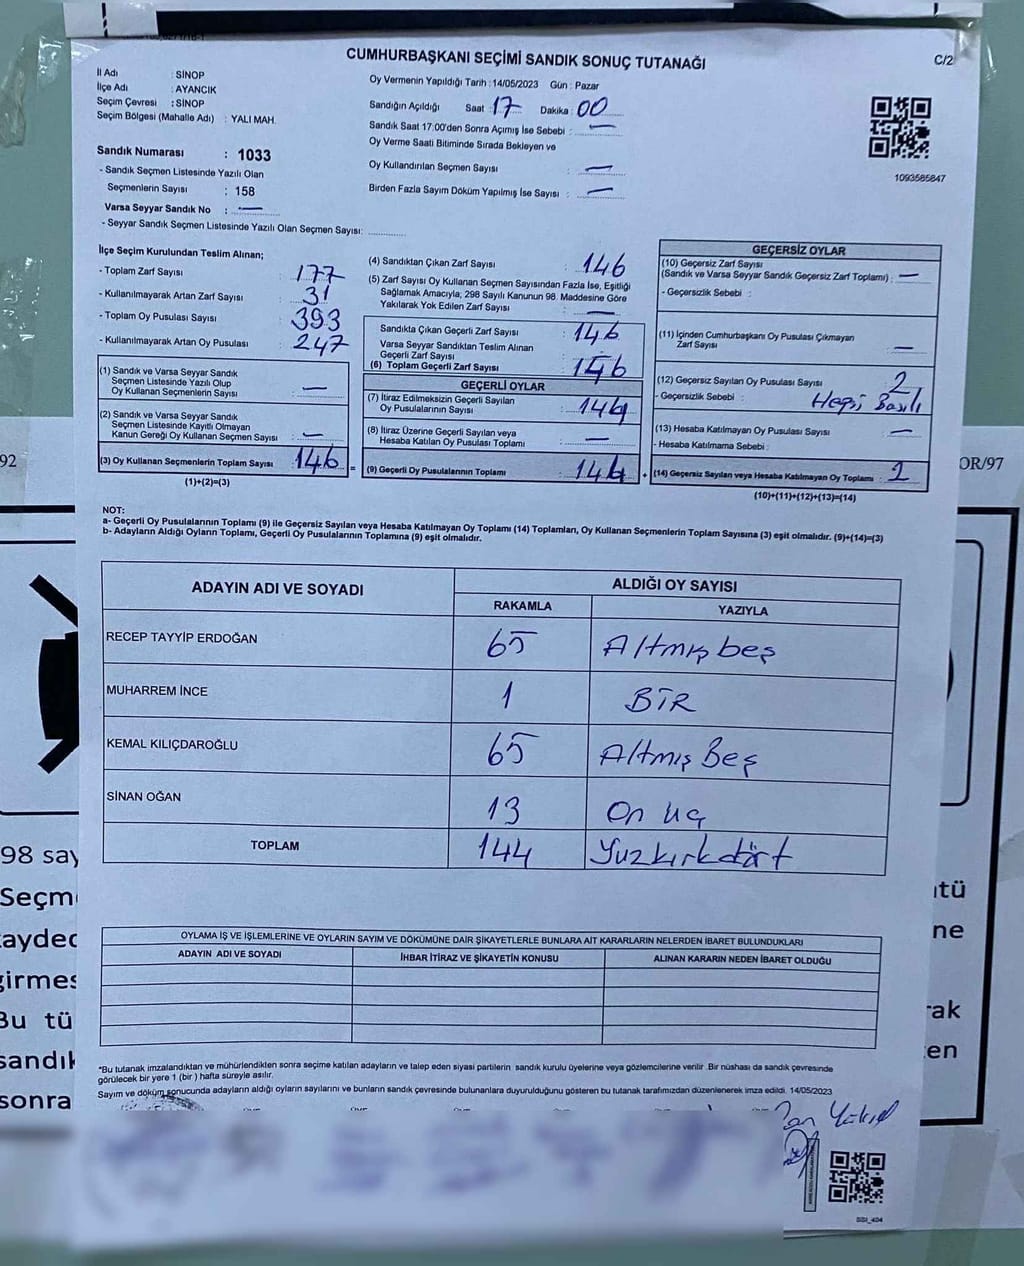 CUMHURBAŞKANI SEÇİMİ SANDIK SONUÇ TUTANAĞI
C/2
İl Adı : SİNOP
İlçe Adı : AYANCIK
Seçim Çevresi : SİNOP
Seçim Bölgesi (Mahalle Adı) : YALI MAH.
Sandık Numarası : 1033
- Sandık Seçmen Listesinde Yazılı Olan
Seçmenlerin Sayısı : 158
Varsa Seyyar Sandık No : —
- Seyyar Sandık Seçmen Listesinde Yazılı Olan Seçmen Sayısı: ..............
Oy Vermenin Yapıldığı Tarih : 14/05/2023 Gün : Pazar
Sandığın Açıldığı Saat : 17 Dakika : 00
Sandık Saat 17:00'den Sonra Açımış İse Sebebi : —
Oy Verme Saati Bitiminde Sırada Bekleyen ve
Oy Kullandırılan Seçmen Sayısı : —
Birden Fazla Sayım Döküm Yapılmış İse Sayısı : —
1093585847
İlçe Seçim Kurulundan Teslim Alınan;
- Toplam Zarf Sayısı : 177
- Kullanılmayarak Artan Zarf Sayısı : 31
- Toplam Oy Pusulası Sayısı : 393
- Kullanılmayarak Artan Oy Pusulası : 247
(1) Sandık ve Varsa Seyyar Sandık
Seçmen Listesinde Yazılı Olup
Oy Kullanan Seçmenlerin Sayısı : —
(2) Sandık ve Varsa Seyyar Sandık
Seçmen Listesinde Kayıtlı Olmayan
Kanun Gereği Oy Kullanan Seçmen Sayısı : —
(3) Oy Kullanan Seçmenlerin Toplam Sayısı : 146 =
(1)+(2)=(3)
(4) Sandıktan Çıkan Zarf Sayısı : 146
(5) Zarf Sayısı Oy Kullanan Seçmen Sayısından Fazla İse, Eşitliği
Sağlamak Amacıyla, 298 Sayılı Kanunun 98. Maddesine Göre
Yakılarak Yok Edilen Zarf Sayısı : —
Sandıkta Çıkan Geçerli Zarf Sayısı : 146
Varsa Seyyar Sandıktan Teslim Alınan
Geçerli Zarf Sayısı : —
(6) Toplam Geçerli Zarf Sayısı : 146
GEÇERLİ OYLAR
(7) İtiraz Edilmeksizin Geçerli Sayılan
Oy Pusulalarının Sayısı : 144
(8) İtiraz Üzerine Geçerli Sayılan veya
Hesaba Katılan Oy Pusulası Toplamı : —
(9) Geçerli Oy Pusulalarının Toplamı : 144 +
GEÇERSİZ OYLAR
(10) Geçersiz Zarf Sayısı
(Sandık ve Varsa Seyyar Sandık Geçersiz Zarf Toplamı) : —
- Geçersizlik Sebebi :
(11) İçinden Cumhurbaşkanı Oy Pusulası Çıkmayan
Zarf Sayısı : —
(12) Geçersiz Sayılan Oy Pusulası Sayısı : 2
- Geçersizlik Sebebi : Hepsi Basılı
(13) Hesaba Katılmayan Oy Pusulası Sayısı : —
- Hesaba Katılmama Sebebi :
(14) Geçersiz Sayılan veya Hesaba Katılmayan Oy Toplamı : 2
(10)+(11)+(12)+(13)=(14)
NOT:
a- Geçerli Oy Pusulalarının Toplamı (9) ile Geçersiz Sayılan veya Hesaba Katılmayan Oy Toplamı (14) Toplamları, Oy Kullanan Seçmenlerin Toplam Sayısına (3) eşit olmalıdır. (9)+(14)=(3)
b- Adayların Aldığı Oyların Toplamı, Geçerli Oy Pusulalarının Toplamına (9) eşit olmalıdır.
ADAYIN ADI VE SOYADI ALDIĞI OY SAYISI
RAKAMLA YAZIYLA
RECEP TAYYİP ERDOĞAN 65 Altmış beş
MUHARREM İNCE 1 BİR
KEMAL KILIÇDAROĞLU 65 Altmış Beş
SİNAN OĞAN 13 On üç
TOPLAM 144 Yüzkırkdört
OYLAMA İŞ VE İŞLEMLERİNE VE OYLARIN SAYIM VE DÖKÜMÜNE DAİR ŞİKAYETLERLE BUNLARA AİT KARARLARIN NELERDEN İBARET BULUNDUKLARI
ADAYIN ADI VE SOYADI İHBAR İTİRAZ VE ŞİKAYETİN KONUSU ALINAN KARARIN NEDEN İBARET OLDUĞU
*Bu tutanak imzalandıktan ve mühürlendikten sonra seçime katılan adayların ve talep eden siyasi partilerin sandık kurulu üyelerine veya gözlemcilerine verilir .Bir nüshası da sandık çevresinde
görülecek bir yere 1 (bir ) hafta süreyle asılır.
Sayım ve döküm sonucunda adayların aldığı oyların sayılarını ve bunların sandık çevresinde bulunanlara duyurulduğunu gösteren bu tutanak tarafımızdan düzenlenerek imza edildi. 14/05/2023
92
OR/97
98 say
Seçm
kaydec
girmes
Bu tü
sandık
sonra
tü
ne
rak
en